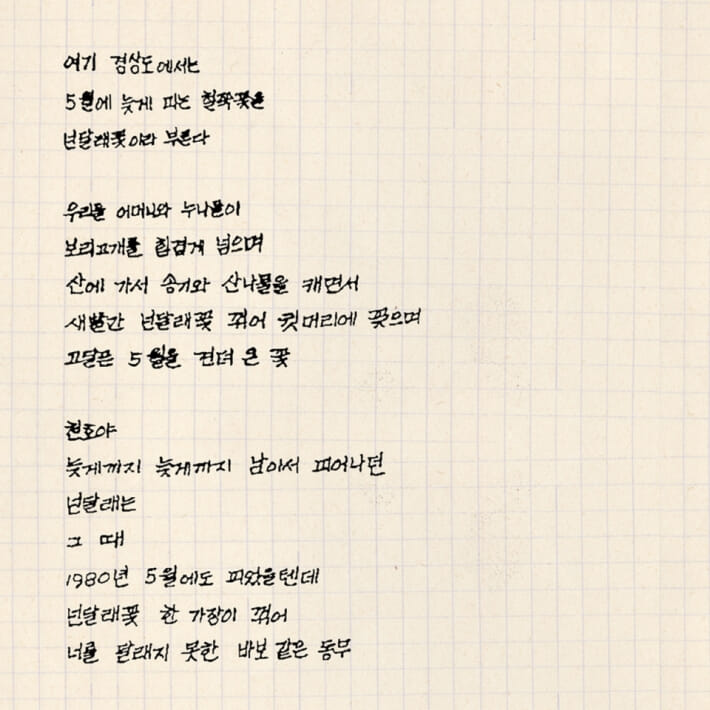 여기 경상도에서는
5월에 늦게 피는 철쭉꽃을
넌달래꽃이라 부른다
우리들 어머니와 누나들이
보리고개를 힘겹게 넘으며
산에 가서 송기와 산나물을 캐면서
새빨간 넌달래꽃 꺾어 귓머리에 꽂으며
고달픈 5월을 견뎌 온 꽃
현호야
늦게까지 늦게까지 남아서 피어나던
넌달래는
그 때
1980년 5월에도 피었을텐데
넌달래꽃 한 가장이 꺾어
너를 달래지 못한 바보 같은 동무